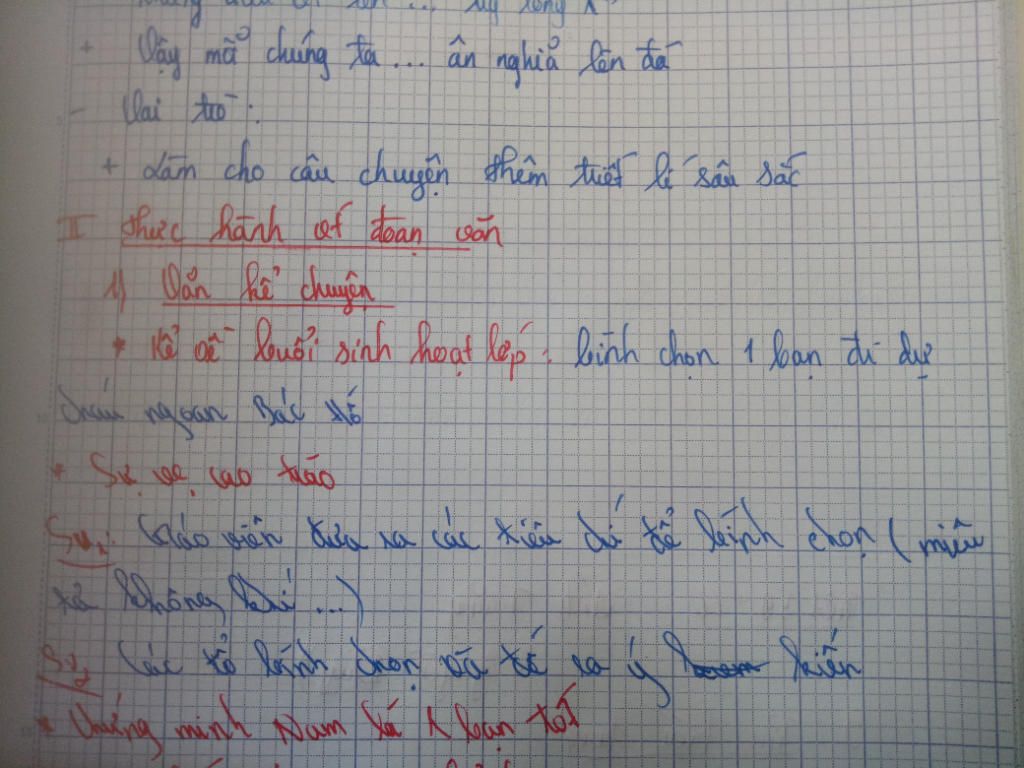 + Vậy mà chúng ta ... ân nghĩa lên đá
- Vai trò :
+ Làm cho câu chuyện thêm triết lí sâu sắc
II thực hành vt đoạn văn
1) Văn kể chuyện
* Kể về buổi sinh hoạt lớp : bình chọn 1 bạn đi dự
cháu ngoan Bác Hồ
* Sự vc cao trào
Sv1: Giáo viên đưa ra các tiêu chí để bình chọn ( miêu
tả không khí ... )
Sv2 Các tổ bình chọn và đề ra ý kiến
* Chứng minh Nam là 1 bạn tốt